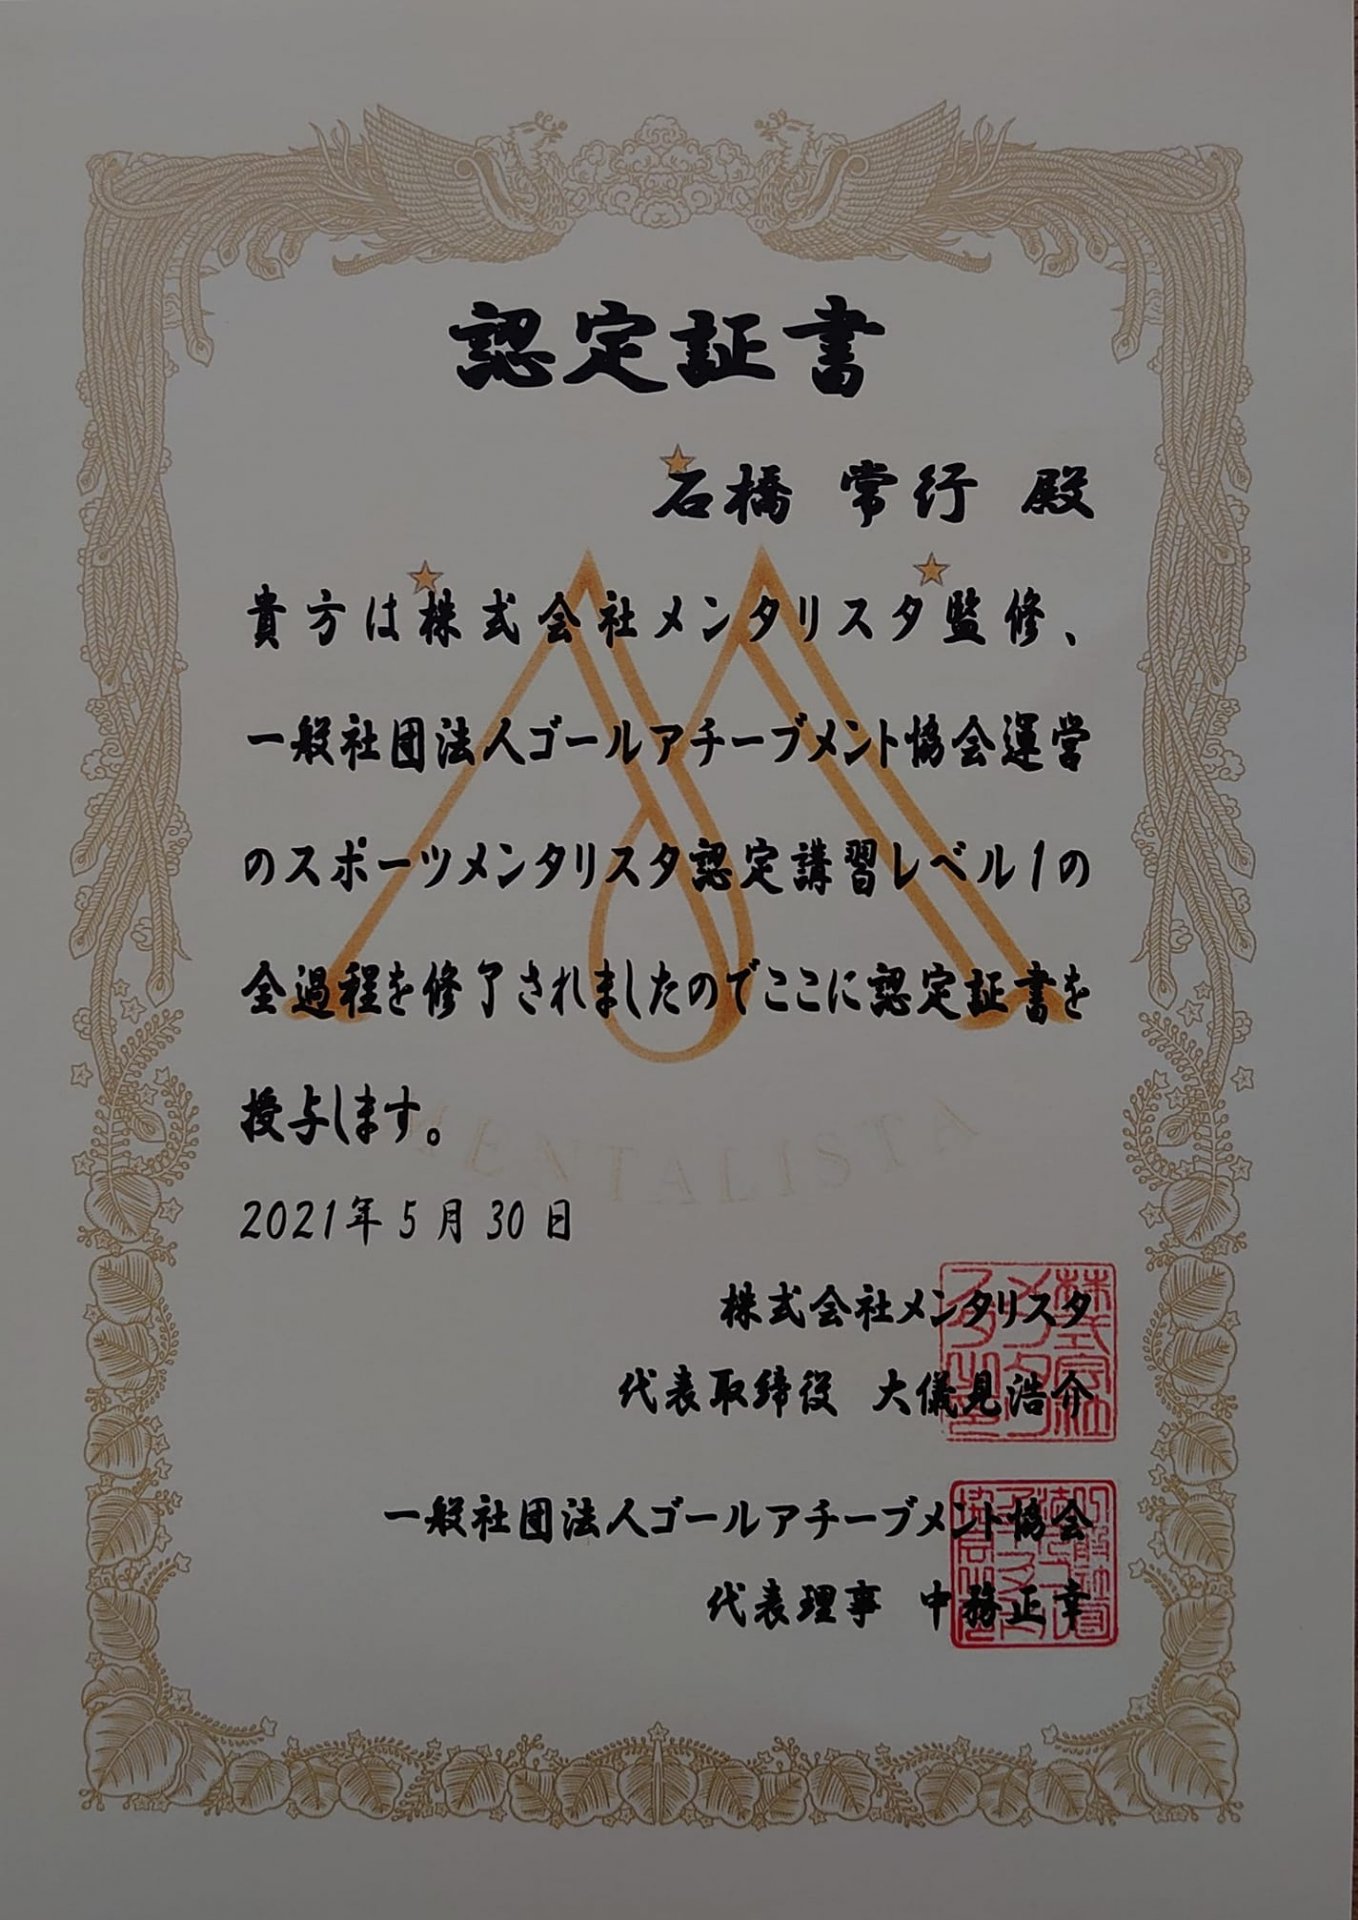 認定証書
石橋 常行 殿
貴方は株式会社メンタリスタ監修、
一般社団法人ゴールアチーブメント協会運営
のスポーツメンタリスタ認定講習レベル1の
全過程を修了されましたのでここに認定証書を
授与します。
MENTALISTA
2021年5月30日
株式会社メンタリスタ
代表取締役 大儀見浩介
一般社団法人ゴールアチーブメント協会
代表理事 中務正幸